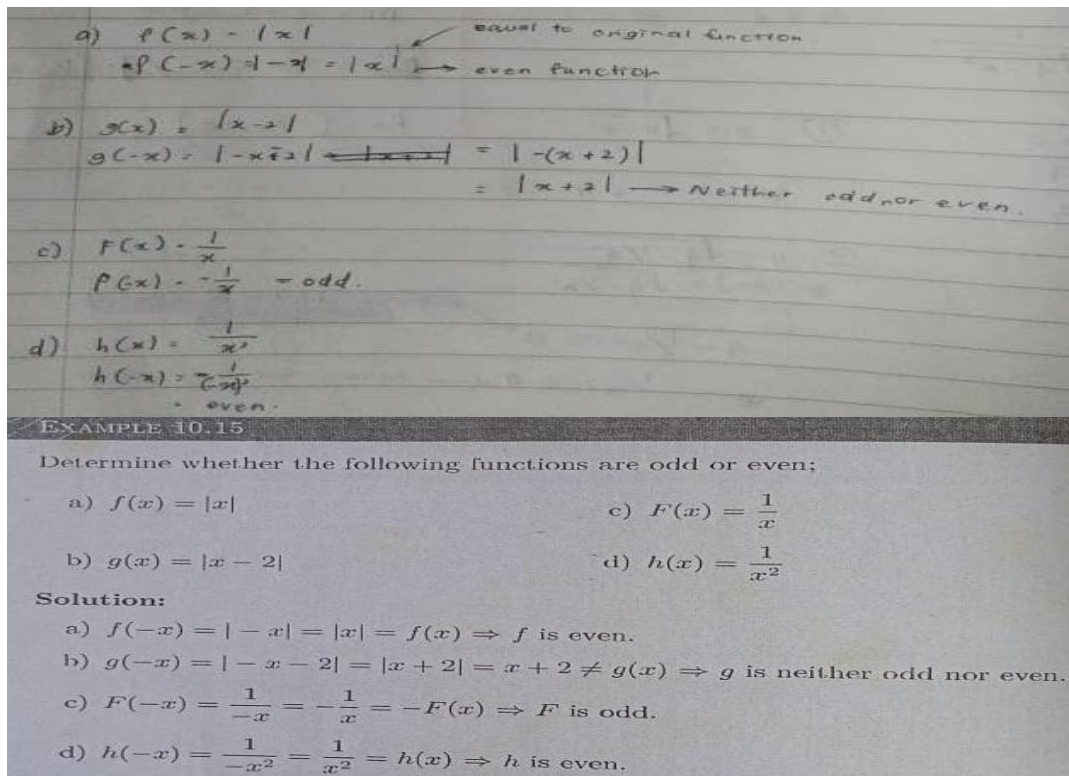 a) f(x) = |x| equal to original function
f(-x) = |-x| = |x| → even function
b) g(x) = |x-2|
g(-x) = |-x-2| = |-(x+2)|
= |x+2| → Neither odd nor even.
c) F(x) = 1/x
f(-x) = -1/x - odd.
d) h(x) = 1/x²
h(-x) = 1/(-x)²
even.
EXAMPLE 10.15
Determine whether the following functions are odd or even;
a) f(x) = |x| c) F(x) = 1/x
b) g(x) = |x − 2| d) h(x) = 1/x²
Solution:
a) f(−x) = | − x| = |x| = f(x) ⇒ f is even.
b) g(−x) = | − x − 2| = |x + 2| = x + 2 ≠ g(x) ⇒ g is neither odd nor even.
c) F(−x) = 1/−x = −1/x = −F(x) ⇒ F is odd.
d) h(−x) = 1/−x² = 1/x² = h(x) ⇒ h is even.